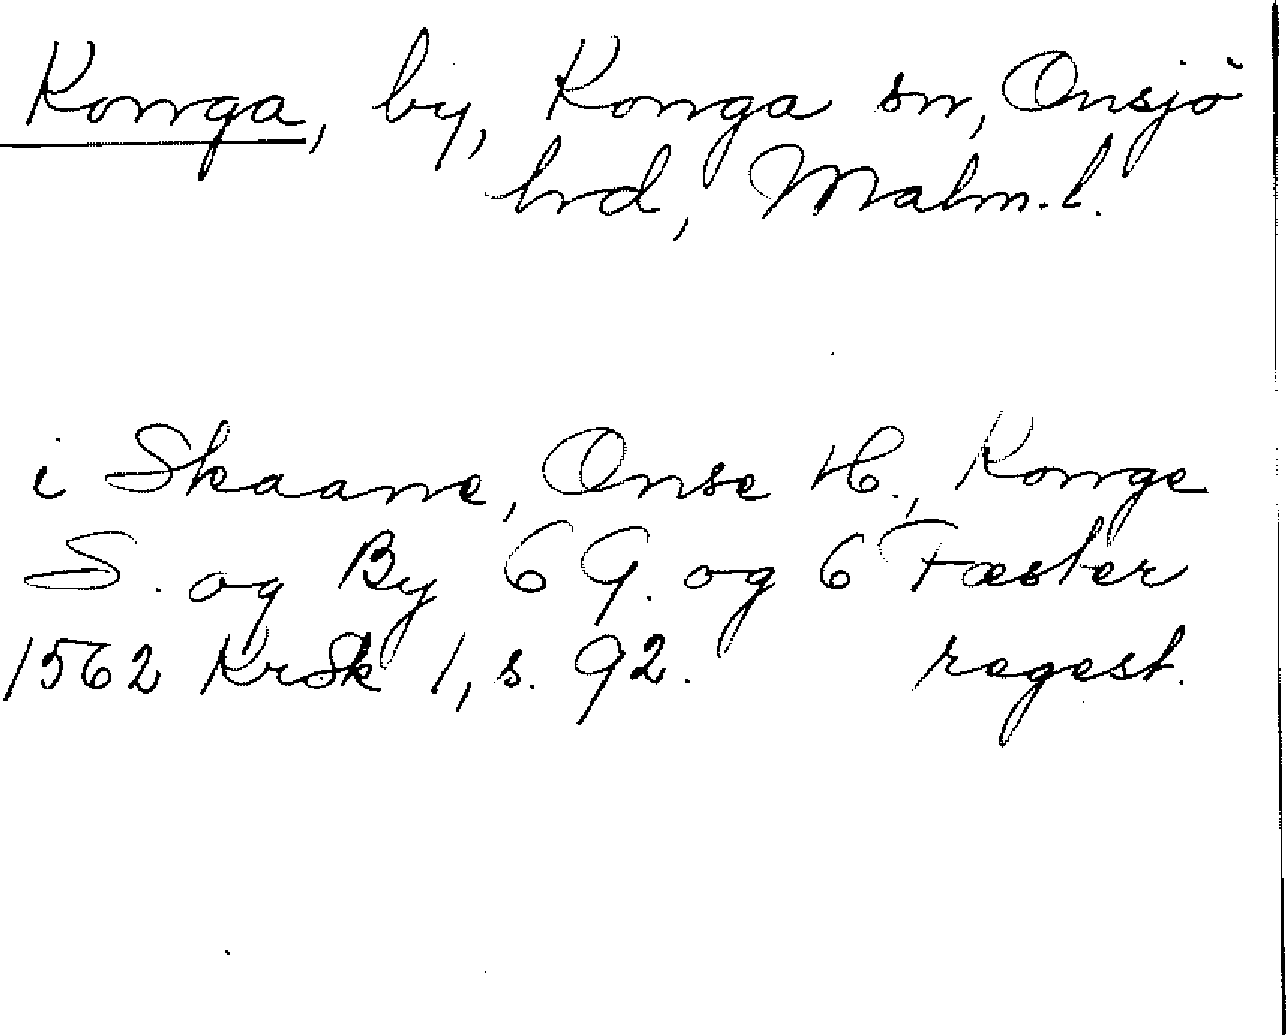 Konga, by, Konga sn, Onsjö
hrd, Malm.l.
i Skaane, Onse H., Konge
S. og By 6 G. og 6 Fæster
1562 KrSk 1, s. 92. regest.